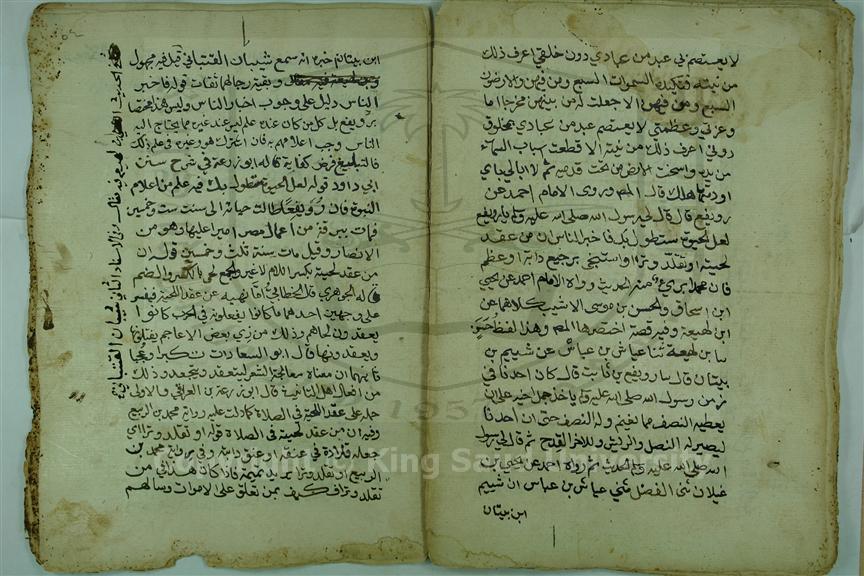 لا يعتصم بي عبد من عبادي دون خلقي اعرف ذلك
من نيته فتكيده السموات السبع ومن فيهن والارضون
السبع ومن فيهن الا جعلت له من بينهن مخرجا اما
وعزتي وعظمتي لا يعتصم عبد من عبادي بمخلوق
دوني اعرف ذلك من نيته الا قطعت اسباب السماء
من يده واسخت الارض من تحت قدميه ثم لا ابالي باي
اوديتها هلك قال المص وروى الامام احمد عن
رويفع قال قال لي رسول الله صلى الله عليه وسلم يا رويفع
لعل الحيوة ستطول بك فاخبر الناس ان من عقد
لحيته او تقلد وترا او استنجى برجيع دابة او عظم
فان محمدا بريء منه الحديث رواه الامام احمد عن يحيى
ابن اسحاق والحسن بن موسى الاشيب كلاهما عن
ابن لهيعة وفيه قصة اختصرها المص وهذا لفظ حسن
سا بن لهيعة ثنا عياش بن عباس عن شييم بن
بيتان قال سا رويفع بن ثابت قال كان احدنا في
زمن رسول الله صلى الله عليه وسلم ياخذ جمل اخيه على ان
يعطيه النصف مما يغنم وله النصف حتى ان احدنا
ليصير له النصل والريش وللاخر القدح ثم قال لي رسول
الله صلى الله عليه وسلم الحديث ثم رواه احمد عن يحيى بن
غيلان ثنى الفضل ثني عياش بن عباس ان شييم
ابن بيتان
ابن بيتان اخبره انه سمع شيبان القتباني قبله فيه مجهول
وبقية رجالهما ثقات قوله فاخبر
الناس دليل على وجوب اخبار الناس وليس هذا مختصا
برويفع بل كل من كان عنده علم ليس عند غيره مما يحتاج اليه
الناس وجب اعلامهم به فان اشترك هو وغيره في علم ذلك
فالتبليغ فرض كفاية قاله ابو زرعة في شرح سنن
ابي داود قوله لعل الحيوة ستطول بك فيه علم من اعلام
النبوة فان رويفعا طالت حياته الى سنة ست وخمسين
فمات ببرقة من اعمال مصر اميرا عليها وهو من
الانصار وقيل مات سنة ثلث وخمسين قوله ان
من عقد لحيته بكسر اللام لا غير والجمع لحى بالكسر والضم
قاله الجوهري قال الخطابي اما نهيه عن عقد اللحية فيفسر
على وجهين احدهما ما كانوا يفعلونه في الحرب كانوا
يعقدون لحاهم وذلك من زي بعض الاعاجم يفتلونها
ويعقدونها قال ابو السعادات تكبرا وعجبا
ثانيهما ان معناه معالجة الشعر ليتعقد ويتجعد وذلك
من افعال اهل التانيث قال ابو زرعة بن العراقي والاولى
حمله على عقد اللحية في الصلاة كما دلت عليه رواية محمد بن الربيع
وفيه ان من عقد لحيته في الصلاة قوله او تقلد وترا اي
جعله قلادة في عنقه او عنق دابته وفي رواية محمد بن
الربيع او تقلد وترا يريد تميمة فاذا كان هذا في من
تقلد وترا فكيف بمن تعلق على الاموات وسالهم
Copyright © King Saud University
1957